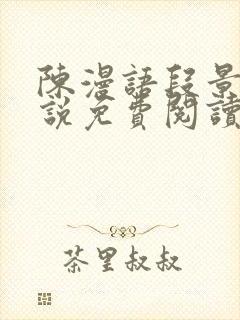 陳漫語段景
說免費閱讀
茶里叔叔